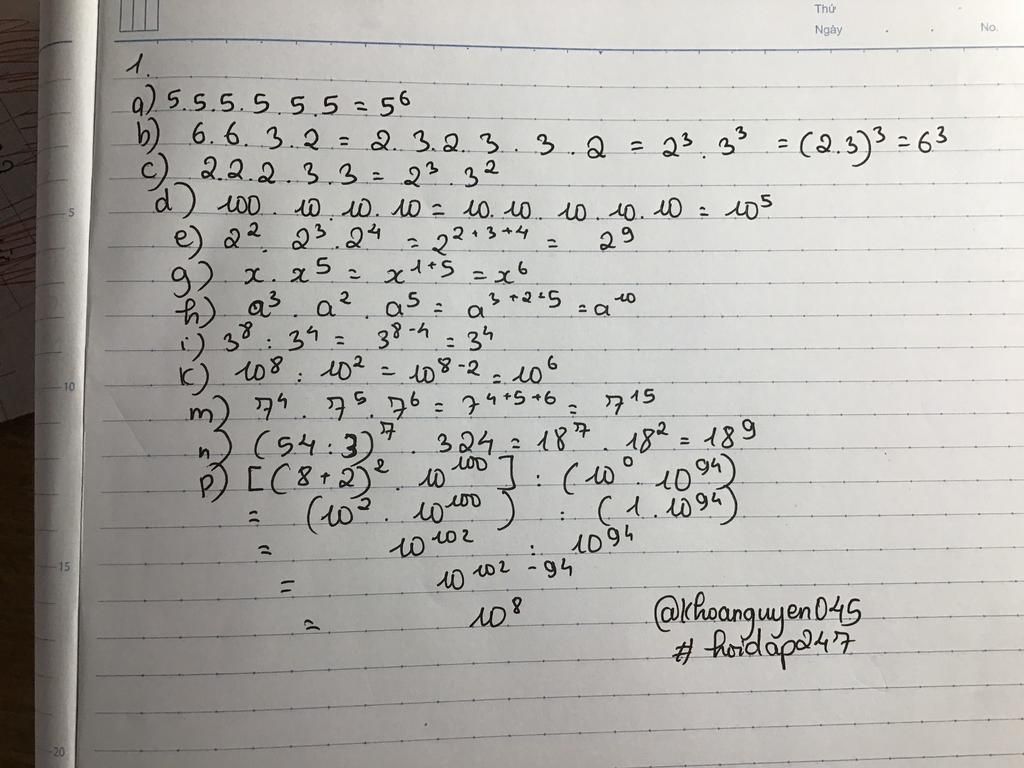 Thứ
Ngày . . No.
1.
a) 5.5.5.5.5.5 = 5⁶
b) 6.6.3.2 = 2.3.2.3.3.2 = 2³.3³ = (2.3)³ = 6³
c) 2.2.2.3.3 = 2³.3²
d) 100.10.10.10 = 10.10.10.10.10 = 10⁵
e) 2².2³.2⁴ = 2²⁺³⁺⁴ = 2⁹
g) x.x⁵ = x¹⁺⁵ = x⁶
h) a³.a².a⁵ = a³⁺²⁺⁵ = a¹⁰
i) 3⁸ : 3⁴ = 3⁸⁻⁴ = 3⁴
k) 10⁸ : 10² = 10⁸⁻² = 10⁶
m) 7⁴.7⁵.7⁶ = 7⁴⁺⁵⁺⁶ = 7¹⁵
n) (54:3)⁷.324 = 18⁷.18² = 18⁹
p) [(8+2)².10¹⁰⁰] : (10⁰.10⁹⁴)
= (10².10¹⁰⁰) : (1.10⁹⁴)
= 10¹⁰² : 10⁹⁴
= 10¹⁰²⁻⁹⁴
= 10⁸
@khoanguyen045
# hoidap247
5
10
15
20